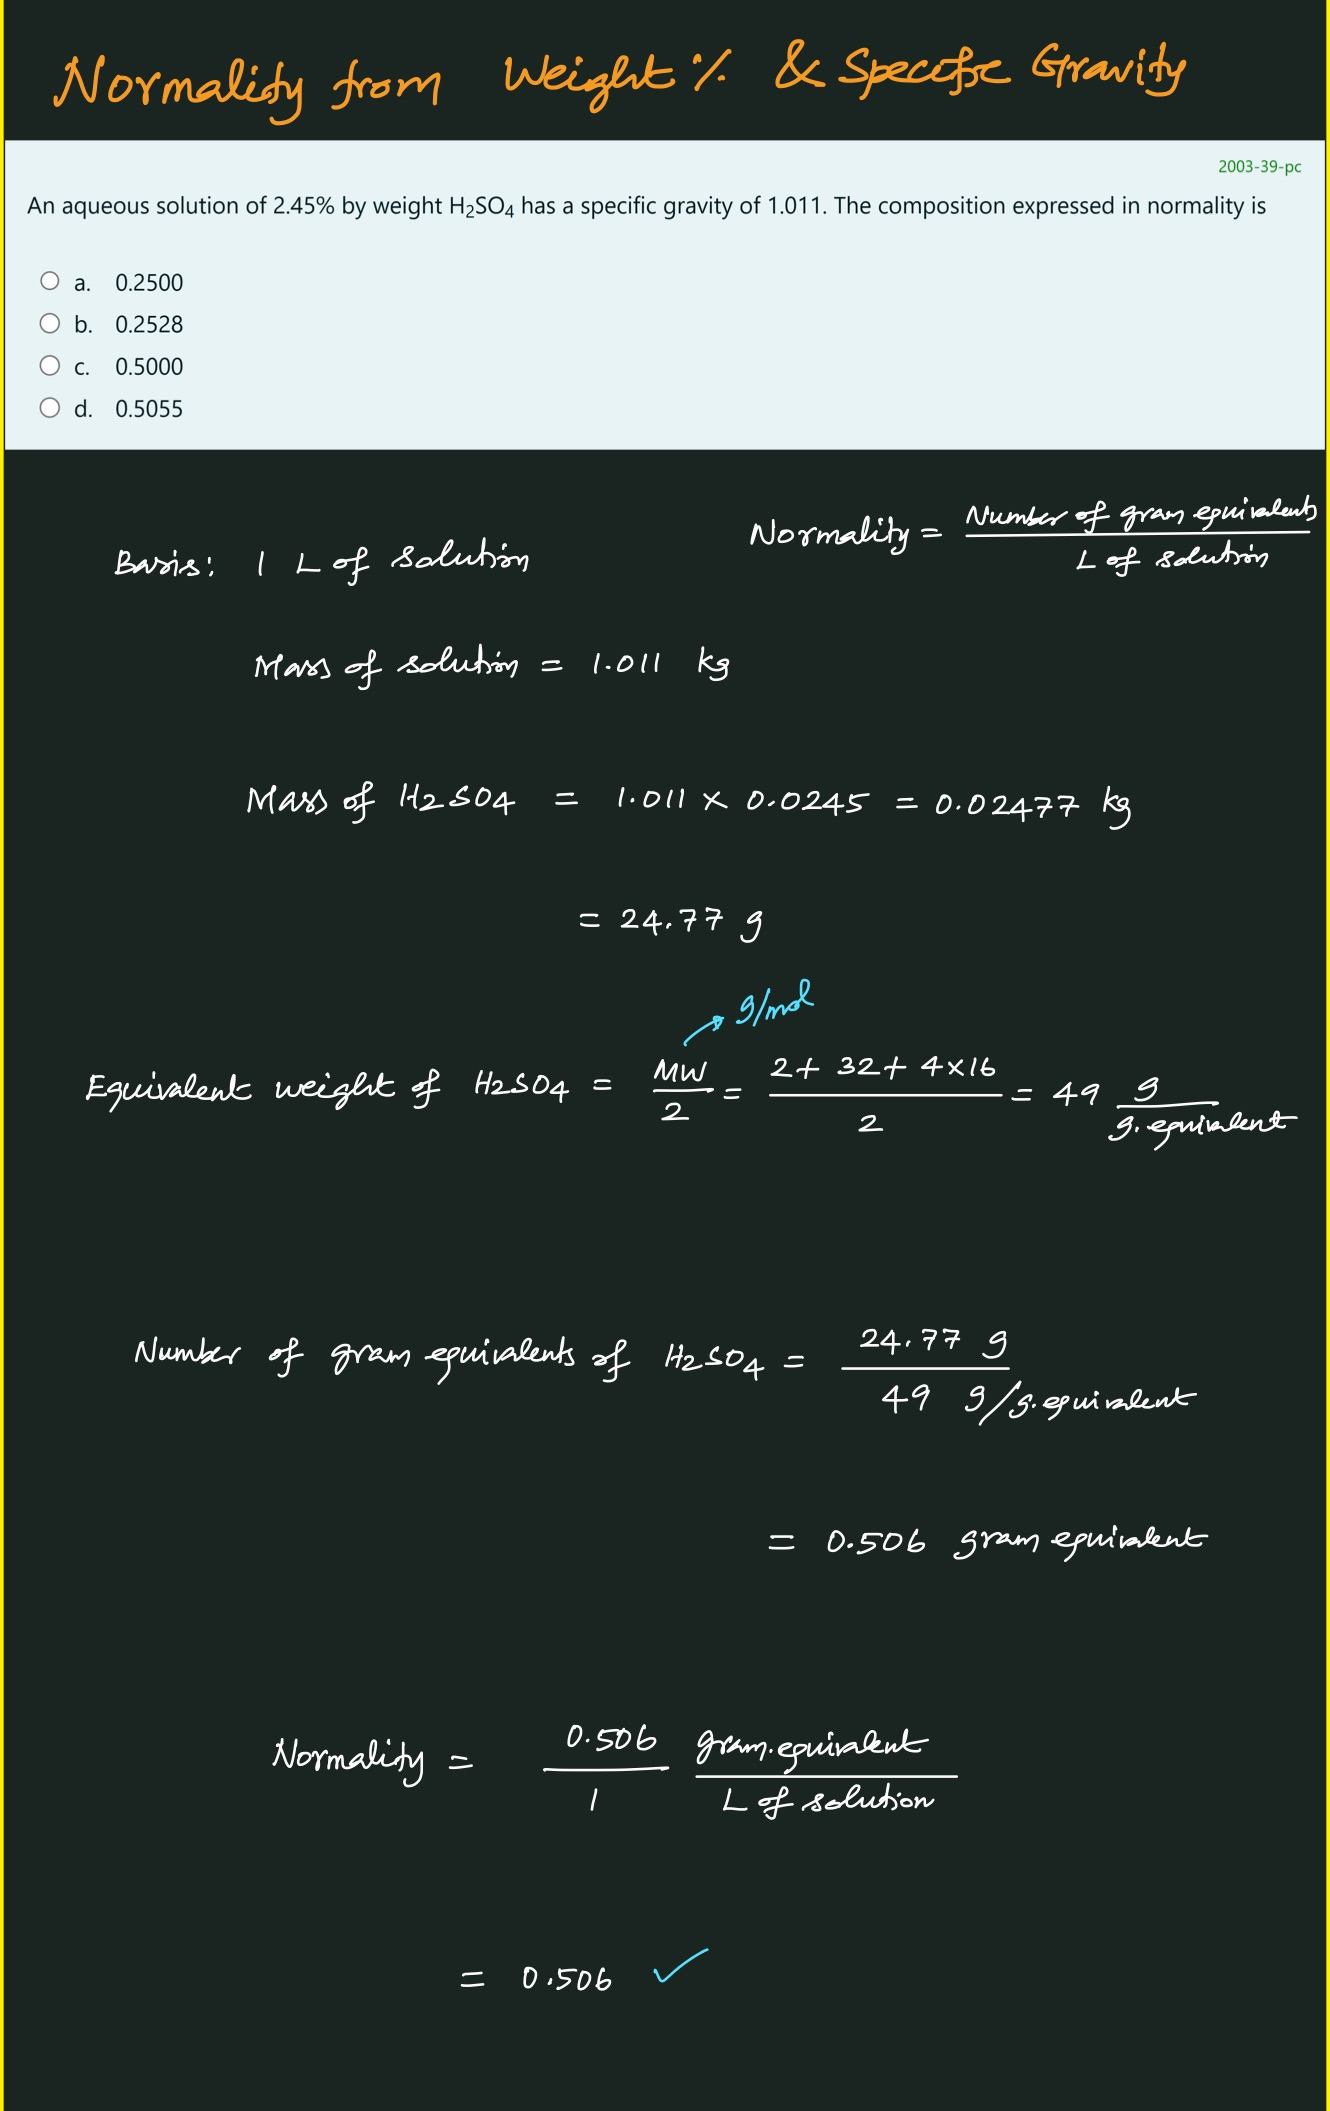 Normality from Weight % & Specific Gravity
2003-39-pc
An aqueous solution of 2.45% by weight H₂SO₄ has a specific gravity of 1.011. The composition expressed in normality is
a. 0.2500
b. 0.2528
c. 0.5000
d. 0.5055
Normality = Number of gram equivalents / L of solution
Basis: 1 L of solution
Mass of solution = 1.011 kg
Mass of H2SO4 = 1.011 × 0.0245 = 0.02477 kg
= 24.77 g
g/mol
Equivalent weight of H2SO4 = MW / 2 = (2 + 32 + 4×16) / 2 = 49 g / g. equivalent
Number of gram equivalents of H2SO4 = 24.77 g / 49 g/g. equivalent
= 0.506 gram equivalent
Normality = 0.506 / 1 gram. equivalent / L of solution
= 0.506 ✓